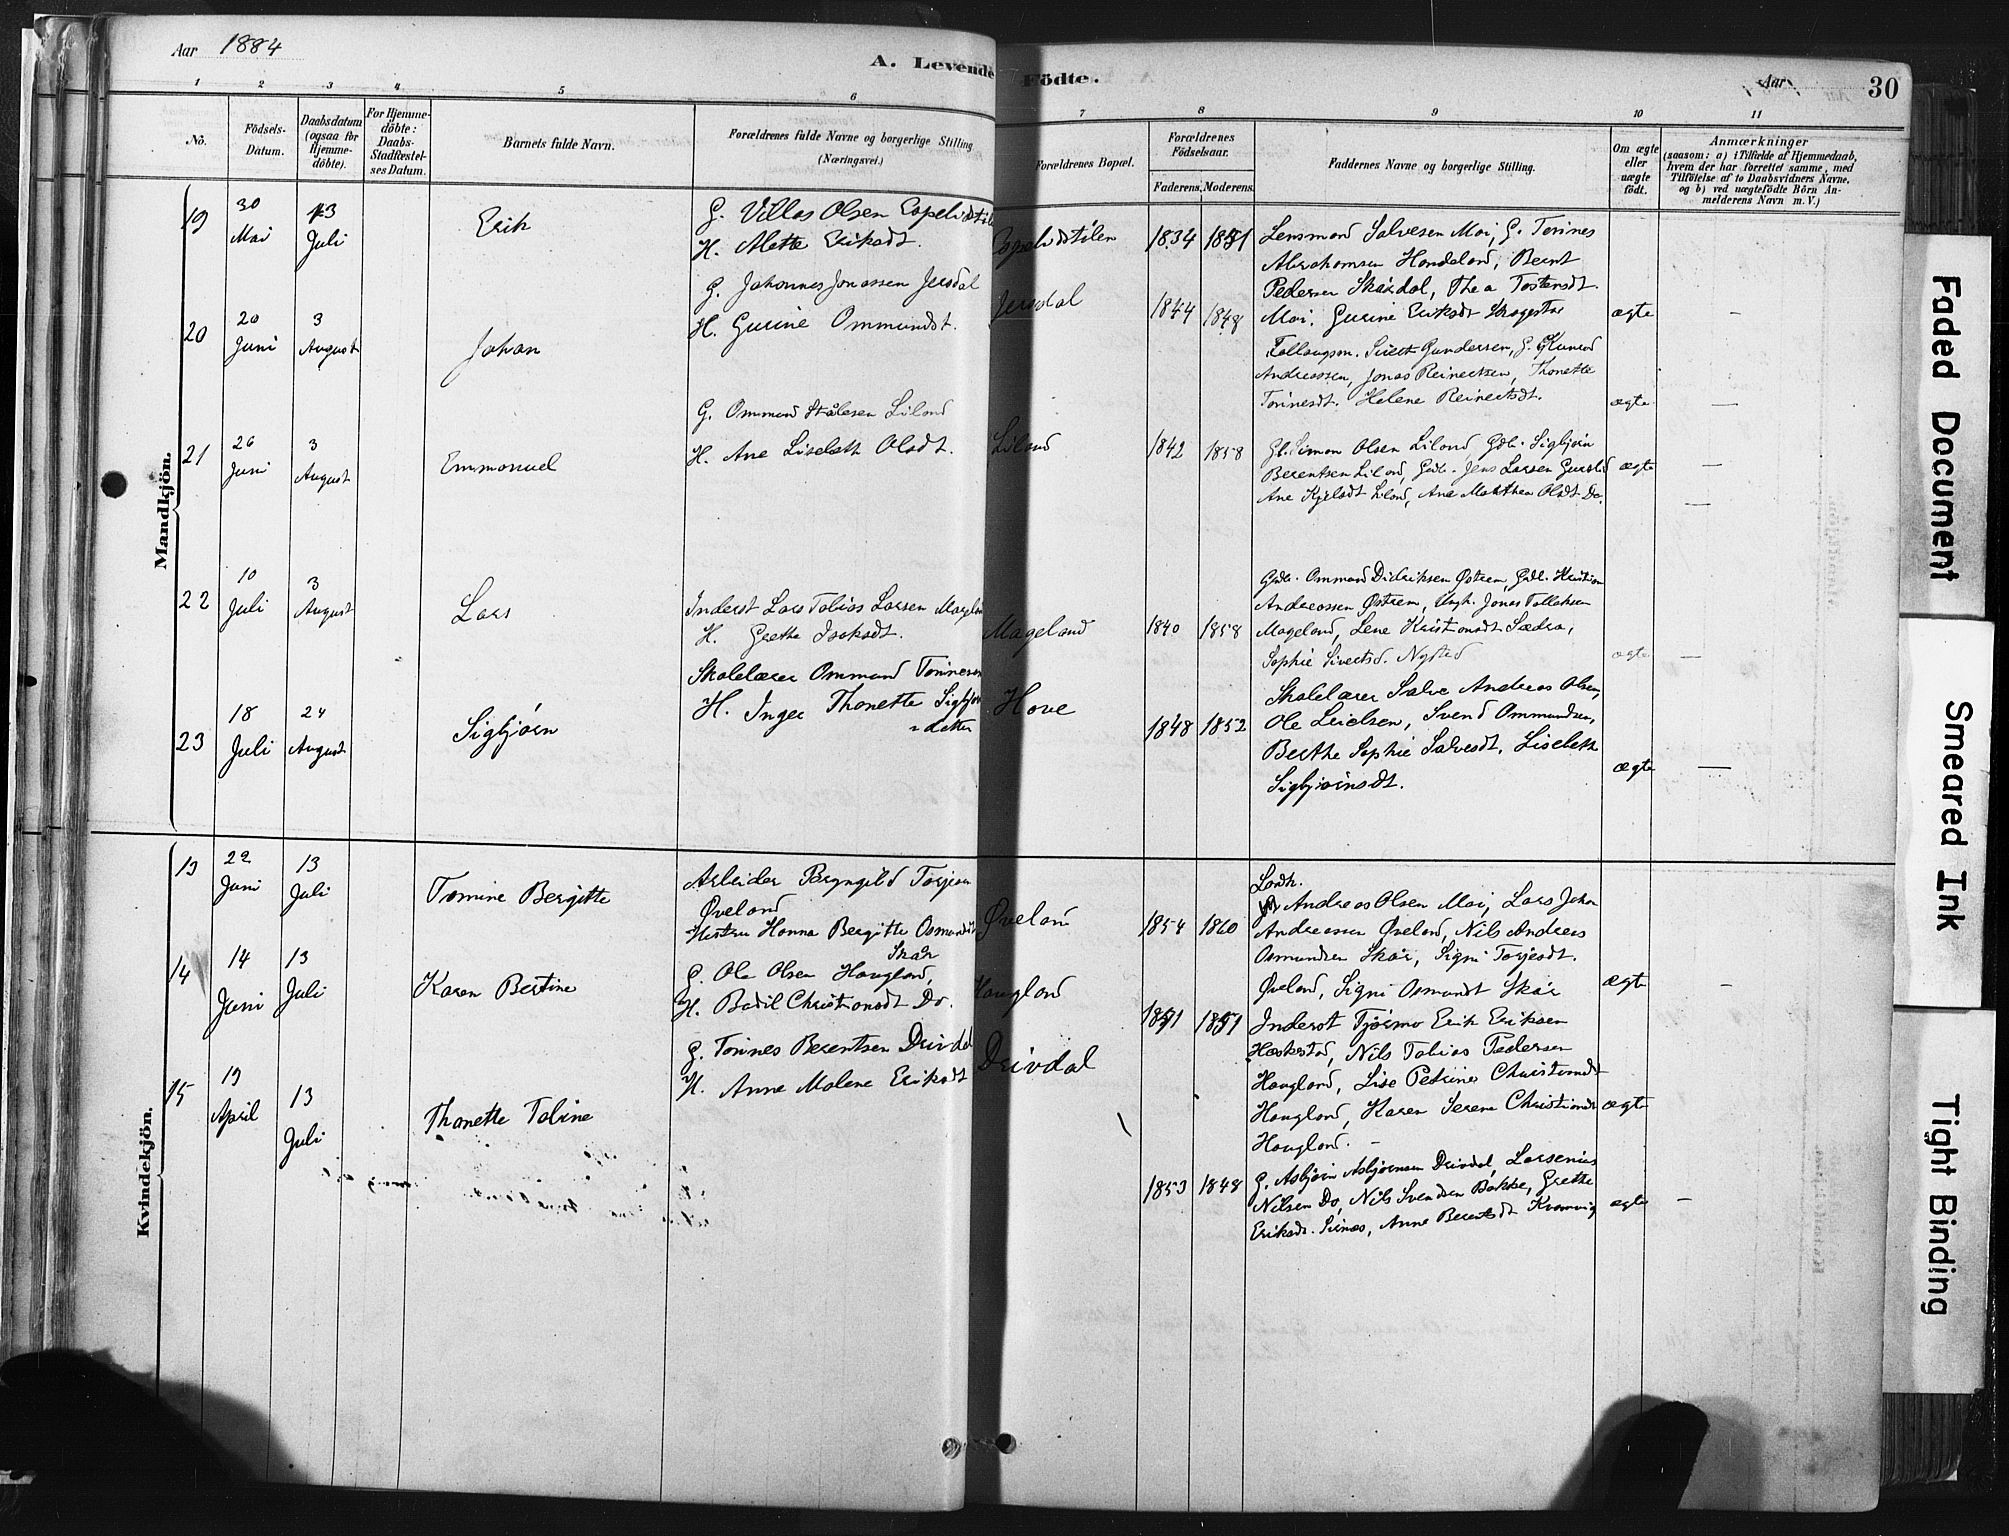 Aar 1884
A. Levende Födte.
Aar
30
1 2 3 4 5 6 7 8 9 10 11
No.
Födsels-Datum.
Daabsdatum (ogsaa for Hjemme-döbte).
For Hjemme-döbte: Daabs-Stadfæstel-ses Datum.
Barnets fulde Navn.
Forældrenes fulde Navne og borgerlige Stilling
(Næringsvei.)
Forældrenes Bopæl.
Forældrenes Födselsaar.
Faderens. Moderens.
Faddernes Navne og borgerlige Stilling.
Om ægte eller uægte födt.
Anmærkninger
(saasom: a) i Tilfælde af Hjemmedaab,
hvem der har forrettet samme, med
Tilföielse af to Daabsvidners Navne,
og b) ved uægtefödte Börn An-
melderens Navn m. V.)
Mandkjön.
19
30 Mai
13 Juli
Erik
G. Villas Olsen
H. Alette Eriksdt.
1834 1851
Lensmand Salvesen Moi, G. Torines
Abrahamsen Handeland, Bernt
Pedersen Skårdal, Thea Tostensdt.
Moi. Gurine Eriksdt Skogestad
ægte
20
20 Juni
3 August
Johan
G. Johannes Jonassen Jersdal
H. Gurine Ommundst.
Jersdal
1844 1848
Sivert Gundersen, G.
Andreassen, Jonas Reinertsen, Thonette
Torinesdt. Helene Reinertsdt.
ægte
21
26 Juni
3 August
Emmanuel
G. Ommund Ståleson Liland
H. Ane Liseleth Olsdt.
Liland
1842 1858
Simon Olsen Liland Gdb. Sigbjørn
Berentsen Liland, Gdb. Jens Larsen
Ane Kjelsdt Liland, Ane Mathea Olsdt Do.
ægte
22
10 Juli
3 August
Lars
Inderst Lars Tobias Larsen Mageland
H. Grethe Isaksdt.
Mageland
1840 1858
Gdb. Ommund Didriksen Østrem, Gdb. Kristian
Andreassen Østrem, Ungk. Jonas Tollaksen
Mageland, Lene Kristiansdt Sædra,
Sophie Sivertsd. Nysted
ægte
23
18 Juli
24 August
Sigbjørn
Skolelærer Ommund Tonnesen
H. Inger Thonette Sigbjørns-
datter
Hove
1848 1852
Skolelærer Salve Andreas Olsen,
Ole Leielsen, Svend Ommundsen,
Berthe Sophie Salvesdt, Liseleth
Sigbjørnsdt.
ægte
Kvindekjön.
13
22 Juni
13 Juli
Tomine Bergitte
Arbeider Bryngild Torjesen
Øveland
Hustru Hanna Bergitte Osmundsdt
Skår
Øveland
1854 1860
Landh.
Andreas Olsen Moi, Lars Johan
Andreassen Øveland, Nils Andreas
Osmundsen Skår, Signi Torjesdt.
Øveland, Signi Osmundt Skår
ægte
14
14 Juni
13 Juli
Karen Bertine
G. Ole Olsen Haugland,
H. Bodil Christiansdt Do.
Haugland
1851 1851
Inderst Tjørmo Erik Eriksen
Haskestad, Nils Tobias Pedersen
Haugland, Lise Petrine Christiansdt
Haugland, Karen Serene Christiansdt
Haugland.
ægte
15
19 April
13 Juli
Thonette Tobine
G. Torines Berentsen Drivdal
H. Anne Malene Eriksdt
Drivdal
1853 1848
G. Asbjørn Asbjørnsen Drivdal, Larsenius
Nilsen Do, Nils Svendsen Bakke, Grethe
Eriksdt. Sirnes, Anne Berentsdt Kvanvig
ægte
Faded Document
Smeared Ink
Tight Binding